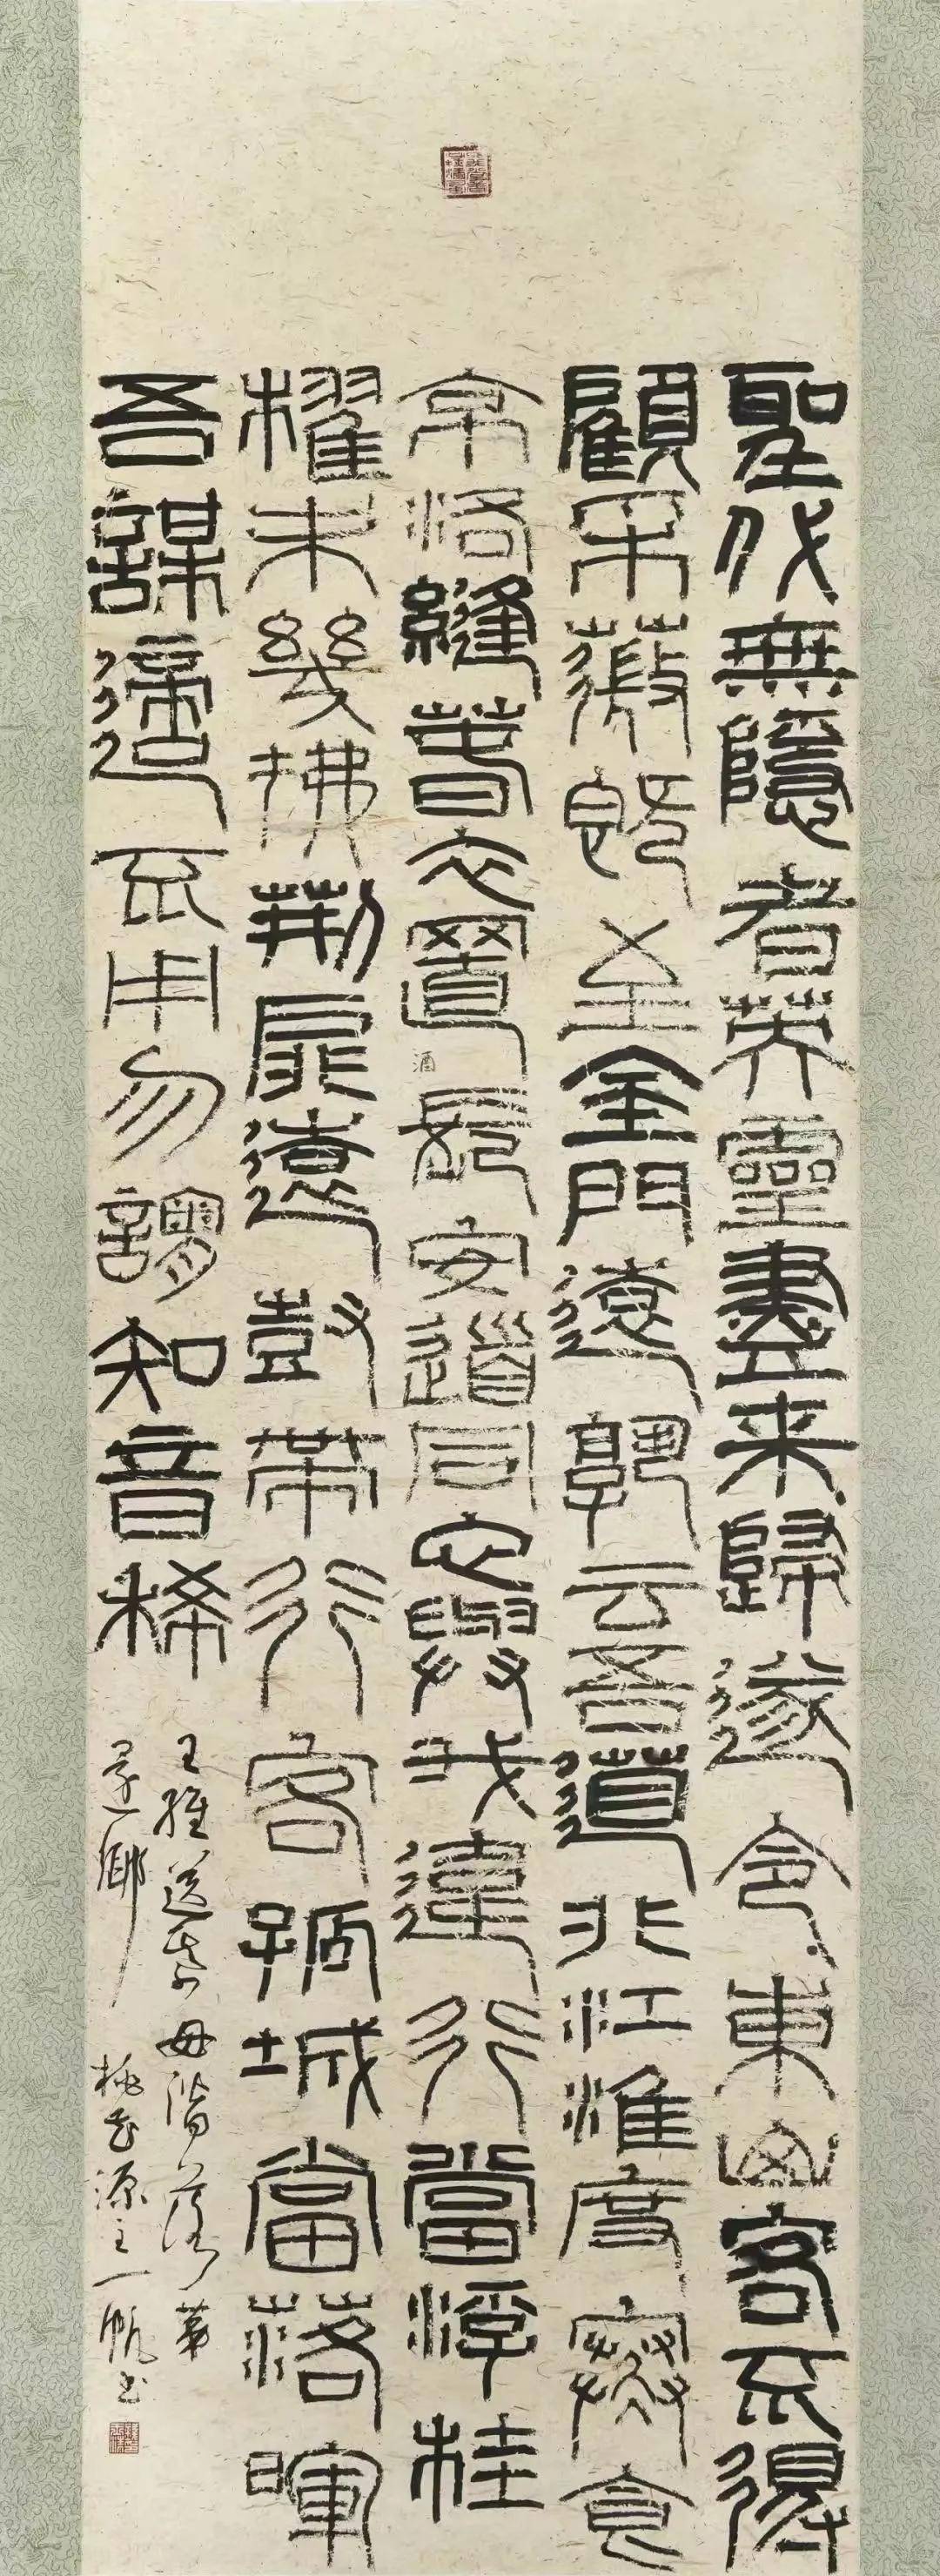 聖代無隱者英靈盡来歸遂令東山客不得
顧采薇既至金門遠孰云吾道非江淮度寒食
京洛縫春衣置酒長安道同心與我違行當浮桂
櫂未幾拂荊扉遠樹帶行客孤城當落暉
吾謀適不用勿謂知音稀
王維送綦毋潛落第
還鄉 桃花源主一帆書